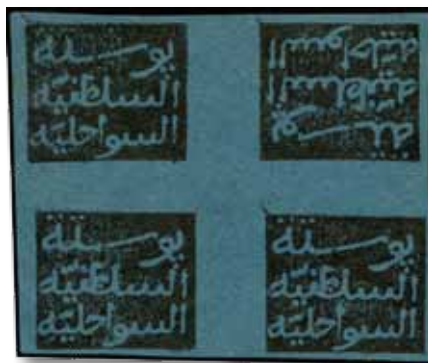 بوستة
السلطانية
السواحلية
بوستة
السلطانية
السواحلية
بوستة
السلطانية
السواحلية
بوستة
السلطانية
السواحلية